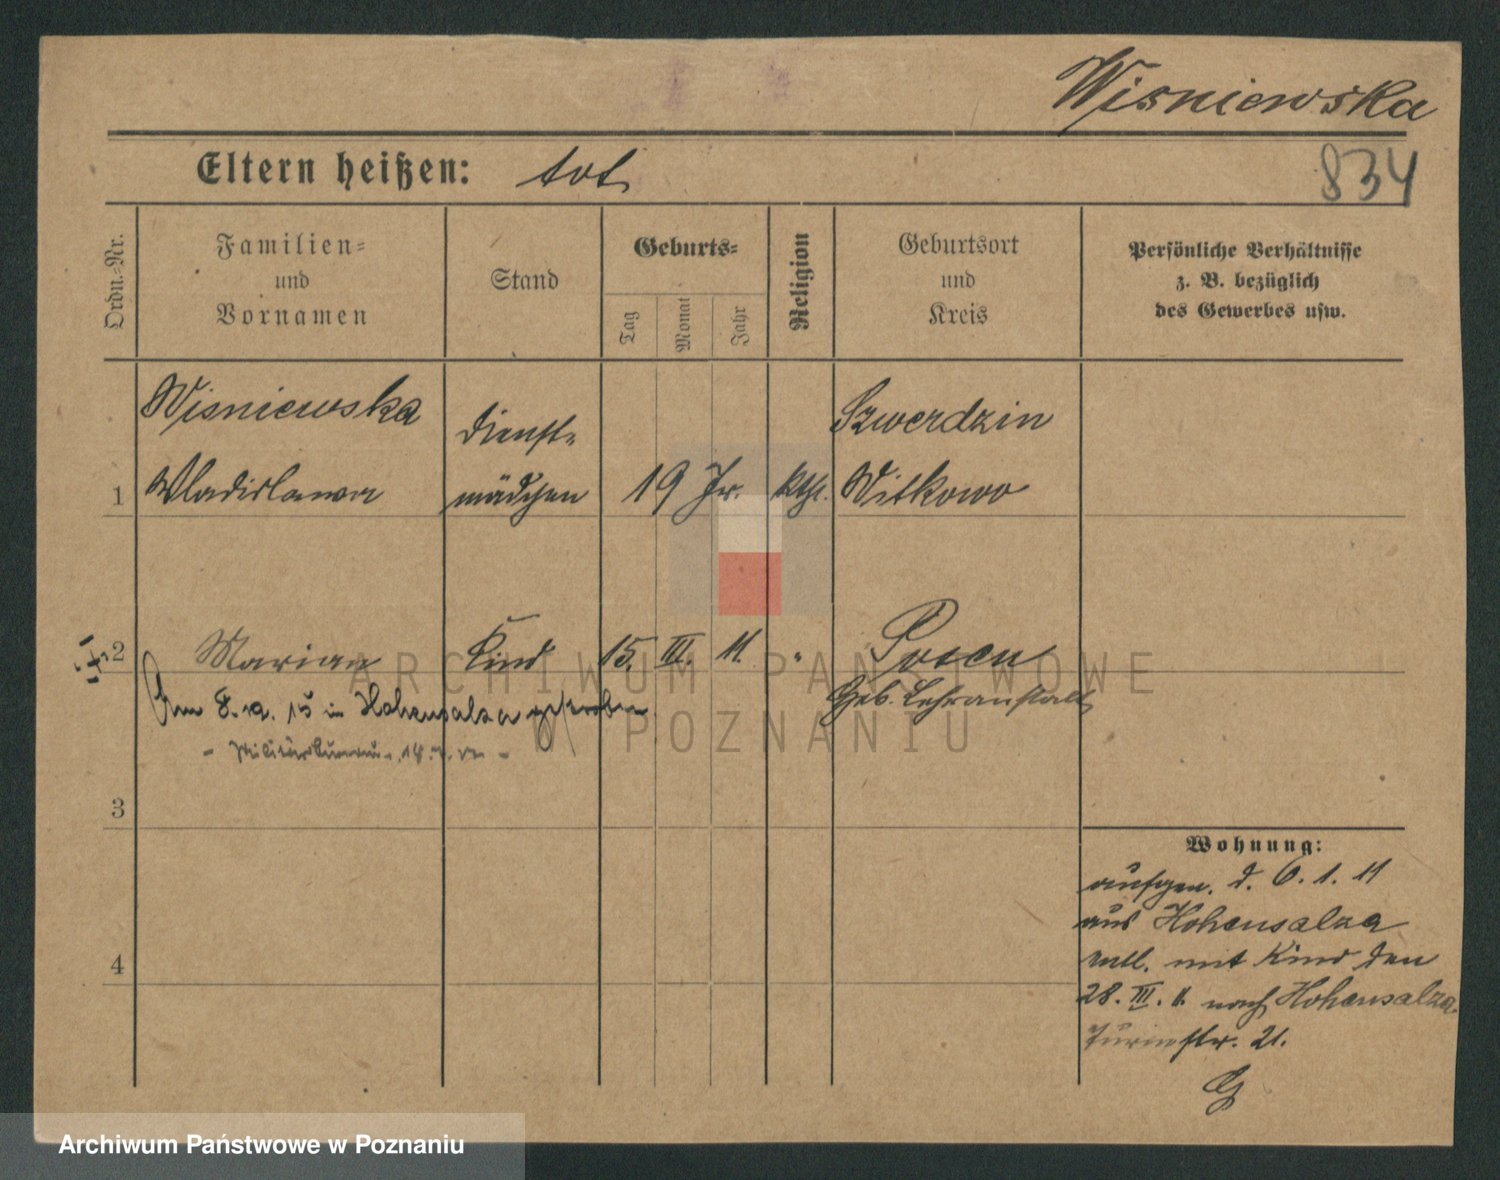 Wisniewska
834
Eltern heißen: tot
Ordn.-Nr.
Familien-
und
Vornamen
Stand
Geburts-
Tag
Monat
Jahr
Religion
Geburtsort
und
Kreis
Persönliche Verhältnisse
z. B. bezüglich
des Gewerbes usw.
Wisniewska
Dienst-
Szwerdzin
1 Wladislawa mädchen 19 Jr. kth. Witkowo
2 Marian Kind 15. III. 11. " Posen
Am 8. 12. 15 in Hohensalza gestorben
Geb. Lehranstalt
3
4
Wohnung:
aufgen. d. 6. 1. 11
aus Hohensalza
entl. mit Kind den
28. III. 11. nach Hohensalza
str. 21.
ARCHIWUM PAŃSTWOWE
W POZNANIU
Archiwum Państwowe w Poznaniu